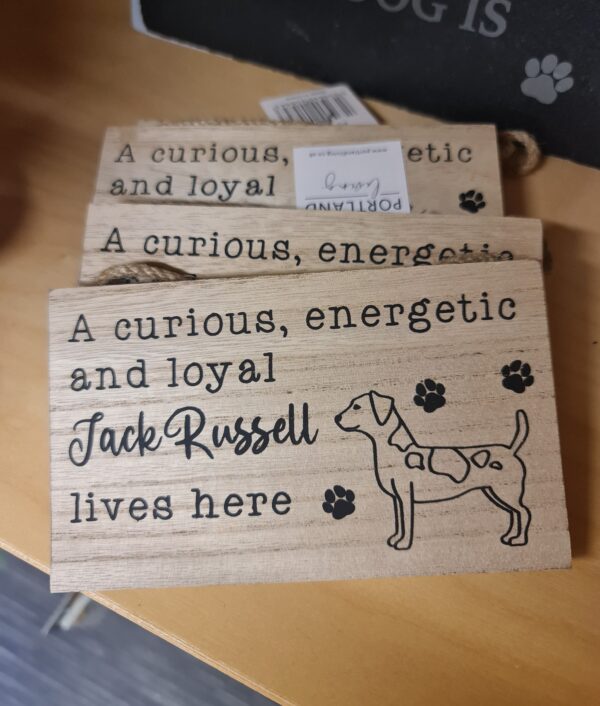 OG IS
A curious, etic
and loyal
PORTLAND
Living
A curious, energetic
A curious, energetic
and loyal
Jack Russell
lives here